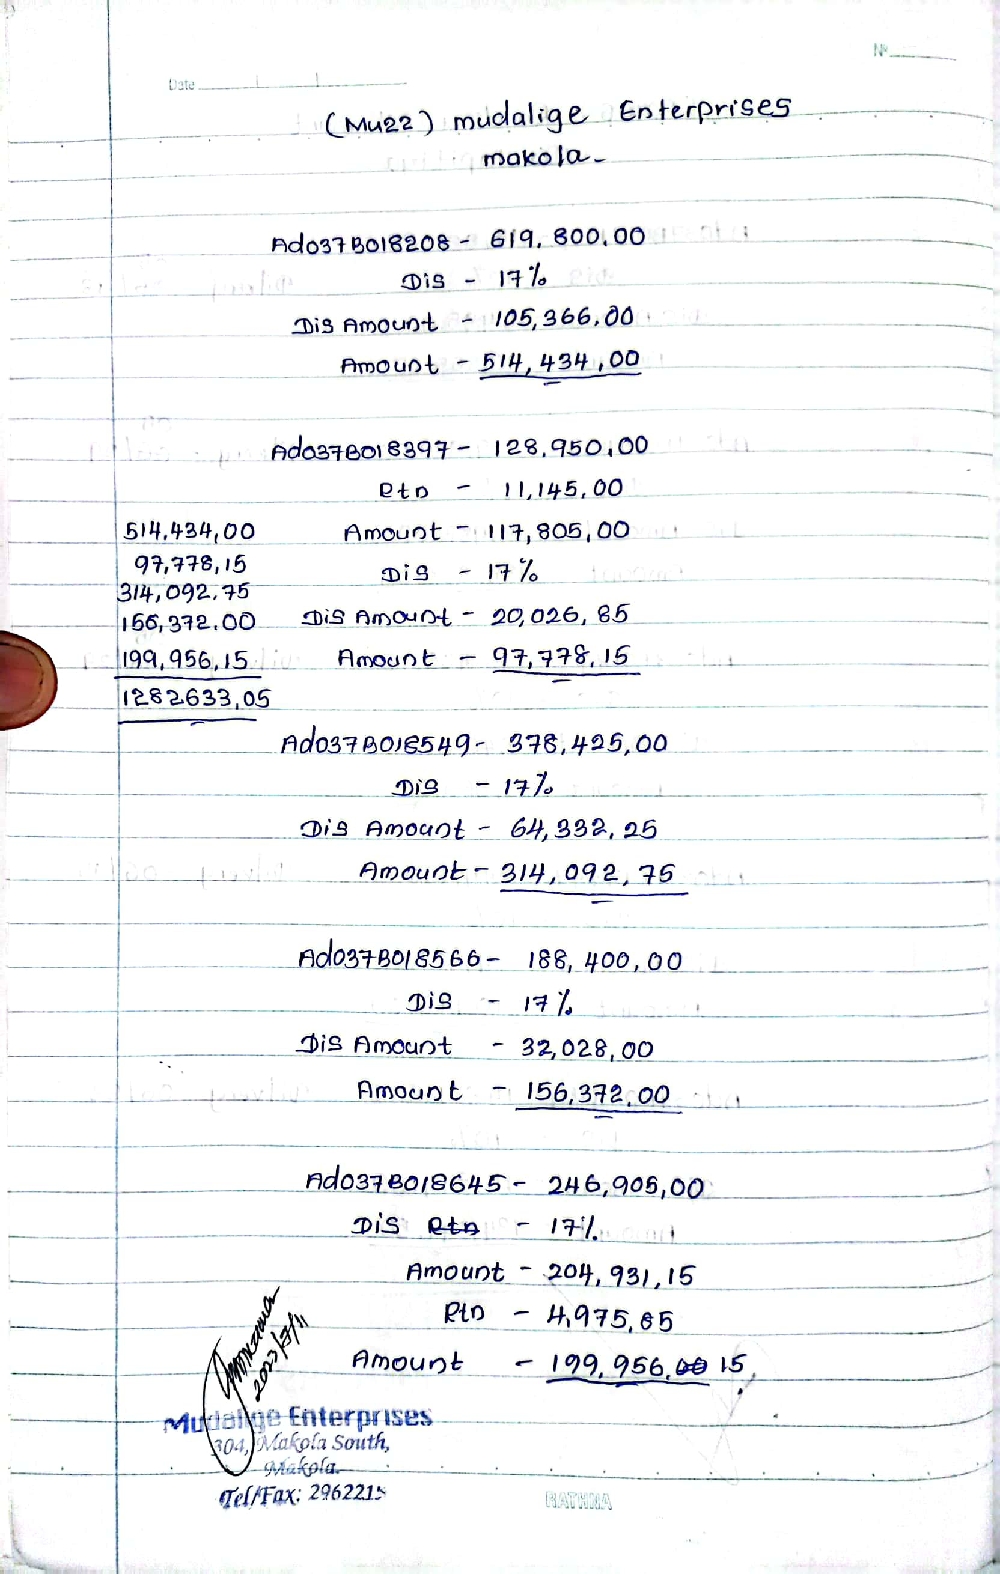 Nº
Date
(Mu22) mudalige Enterprises
makola-
Ad037B018208 - 619,800.00
Dis - 17%
Dis Amount - 105,366.00
Amount - 514,434,00
Ad037B018397 - 128,950,00
Rtn - 11,145,00
Amount - 117,805,00
Dis - 17%
Dis Amount - 20,026,85
Amount - 97,778,15
514,434,00
97,778,15
314,092.75
156,372.00
199,956,15
1282633,05
Ad037B018549 - 378,425,00
Dis - 17%
Dis Amount - 64,332,25
Amount - 314,092,75
Ad037B018566 - 188,400,00
Dis - 17%
Dis Amount - 32,028,00
Amount - 156,372,00
Ad037B018645 - 246,905,00
Dis Rtn - 17%
Amount - 204,931,15
Rtn - 4,975,85
Amount - 199,956.00 15
2023/7/11
Mudalige Enterprises
304, Makola South,
Makola.
Tel/Fax: 2962215
RATHNA